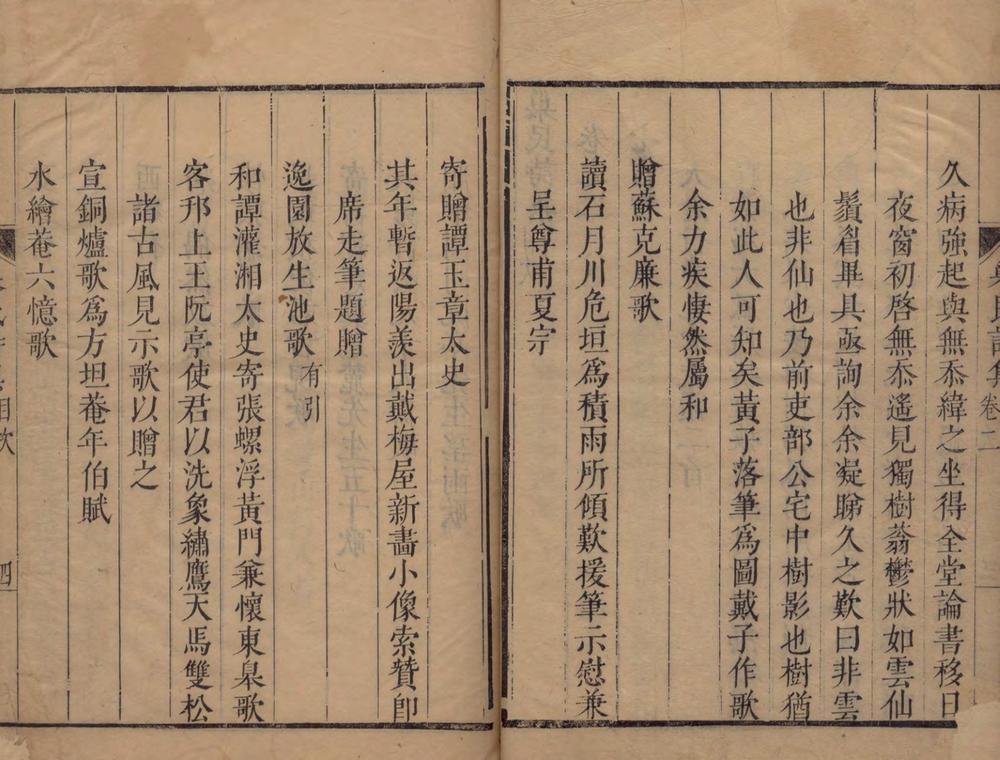 久病強起與無忝緯之坐得全堂論書移日
夜窗初啓無忝遙見獨樹蓊鬱狀如雲仙
鬚眉畢具亟詢余余凝睇久之歎曰非雲
也非仙也乃前吏部公宅中樹影也樹猶
如此人可知矣黃子落筆爲圖戴子作歌
余力疾悽然屬和
贈蘇克廉歌
讀石月川危垣爲積雨所傾歎援筆示慰兼
呈尊甫夏宗
寄贈譚玉章太史
其年暫返陽羨出戴梅屋新畵小像索贊卽
席走筆題贈
逸園放生池歌有引
和譚灌湘太史寄張螺浮黃門兼懷東臯歌
客邗上王阮亭使君以洗象繡鷹天馬雙松
諸古風見示歌以贈之
宣銅爐歌爲方坦菴年伯賦
水繪菴六憶歌
卷二
目次
四